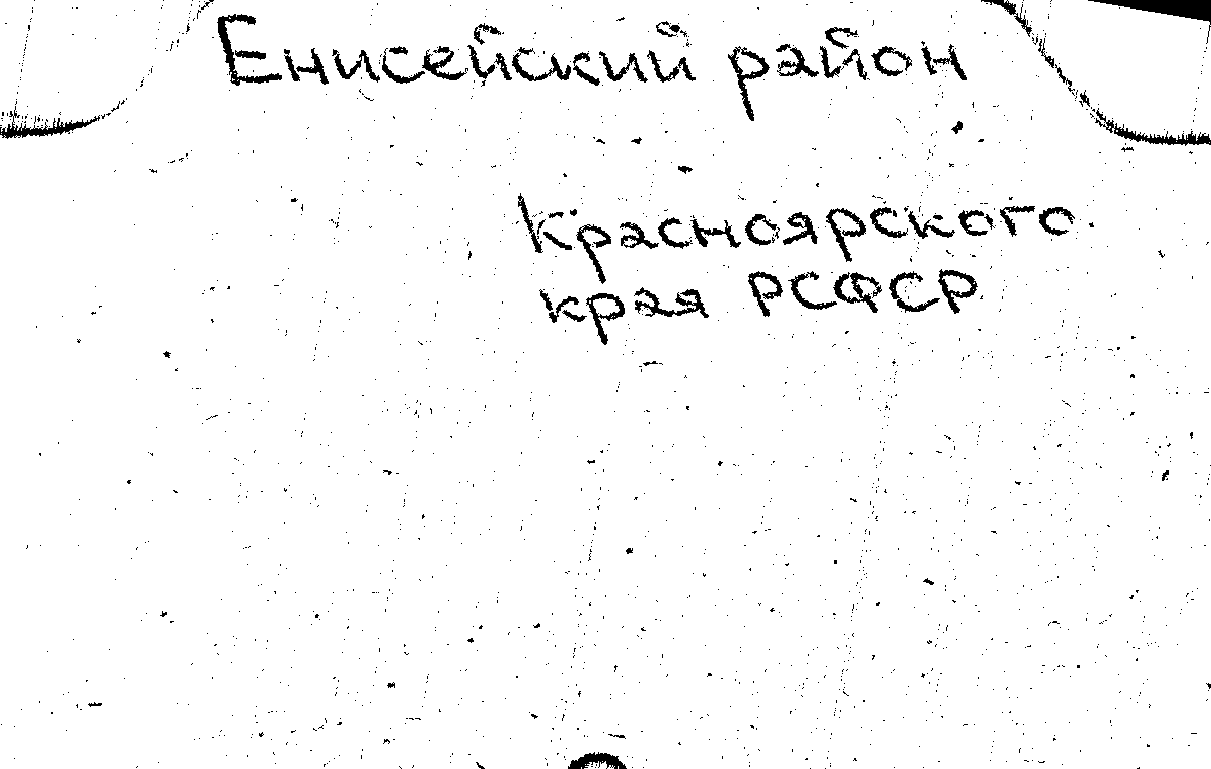 Енисейский район
Красноярского.
края РСФСР